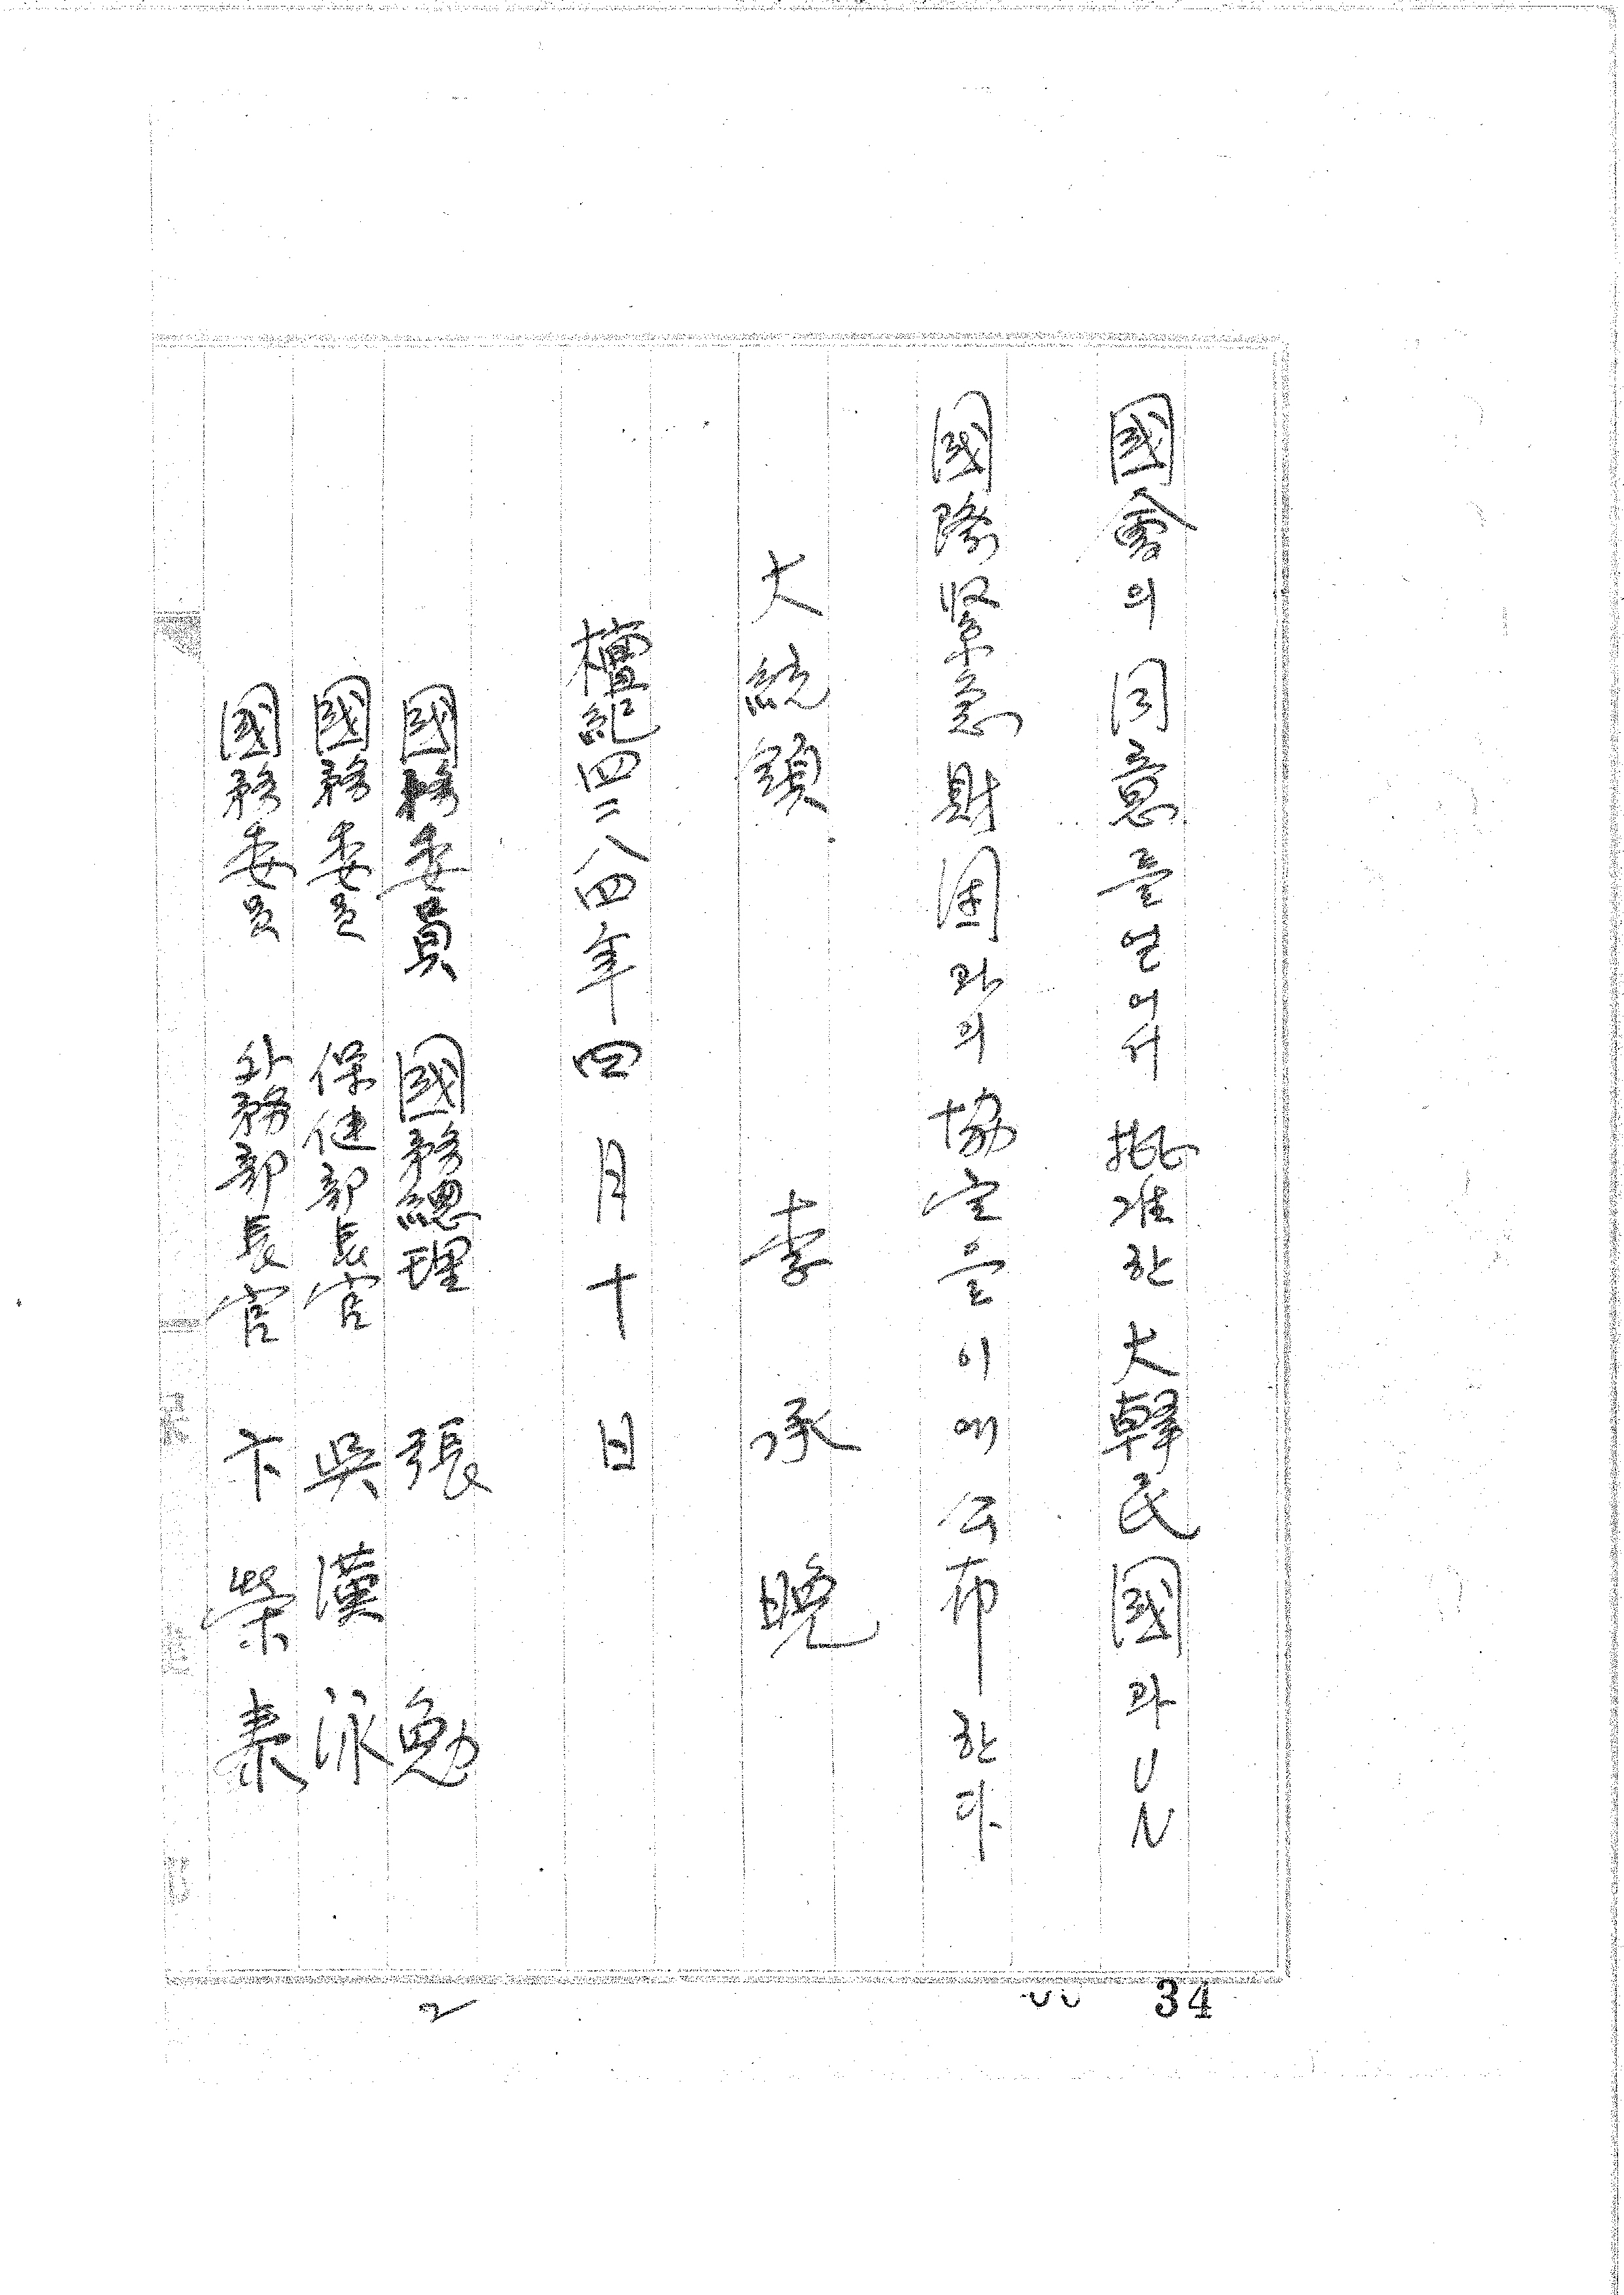 國會의 同意를 얻어서 批准한 大韓民國과 UN
國際緊急財團과의 協定을 이에 公布한다
大統領 李承晩
檀紀四二八四年四月十日
國務委員 國務總理 張勉
國務委員 保健部長官 吳漢泳
國務委員 外務部長官 卞榮泰
34
2